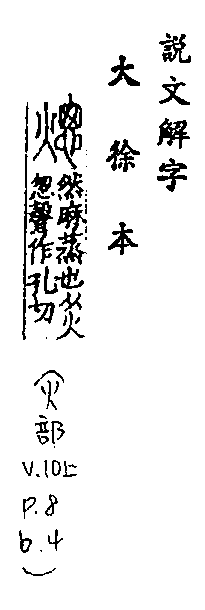 説文解字
大徐本
熜
然麻蒸也从火
怱聲作孔切
(火部
V.10上
P.8
b.4)